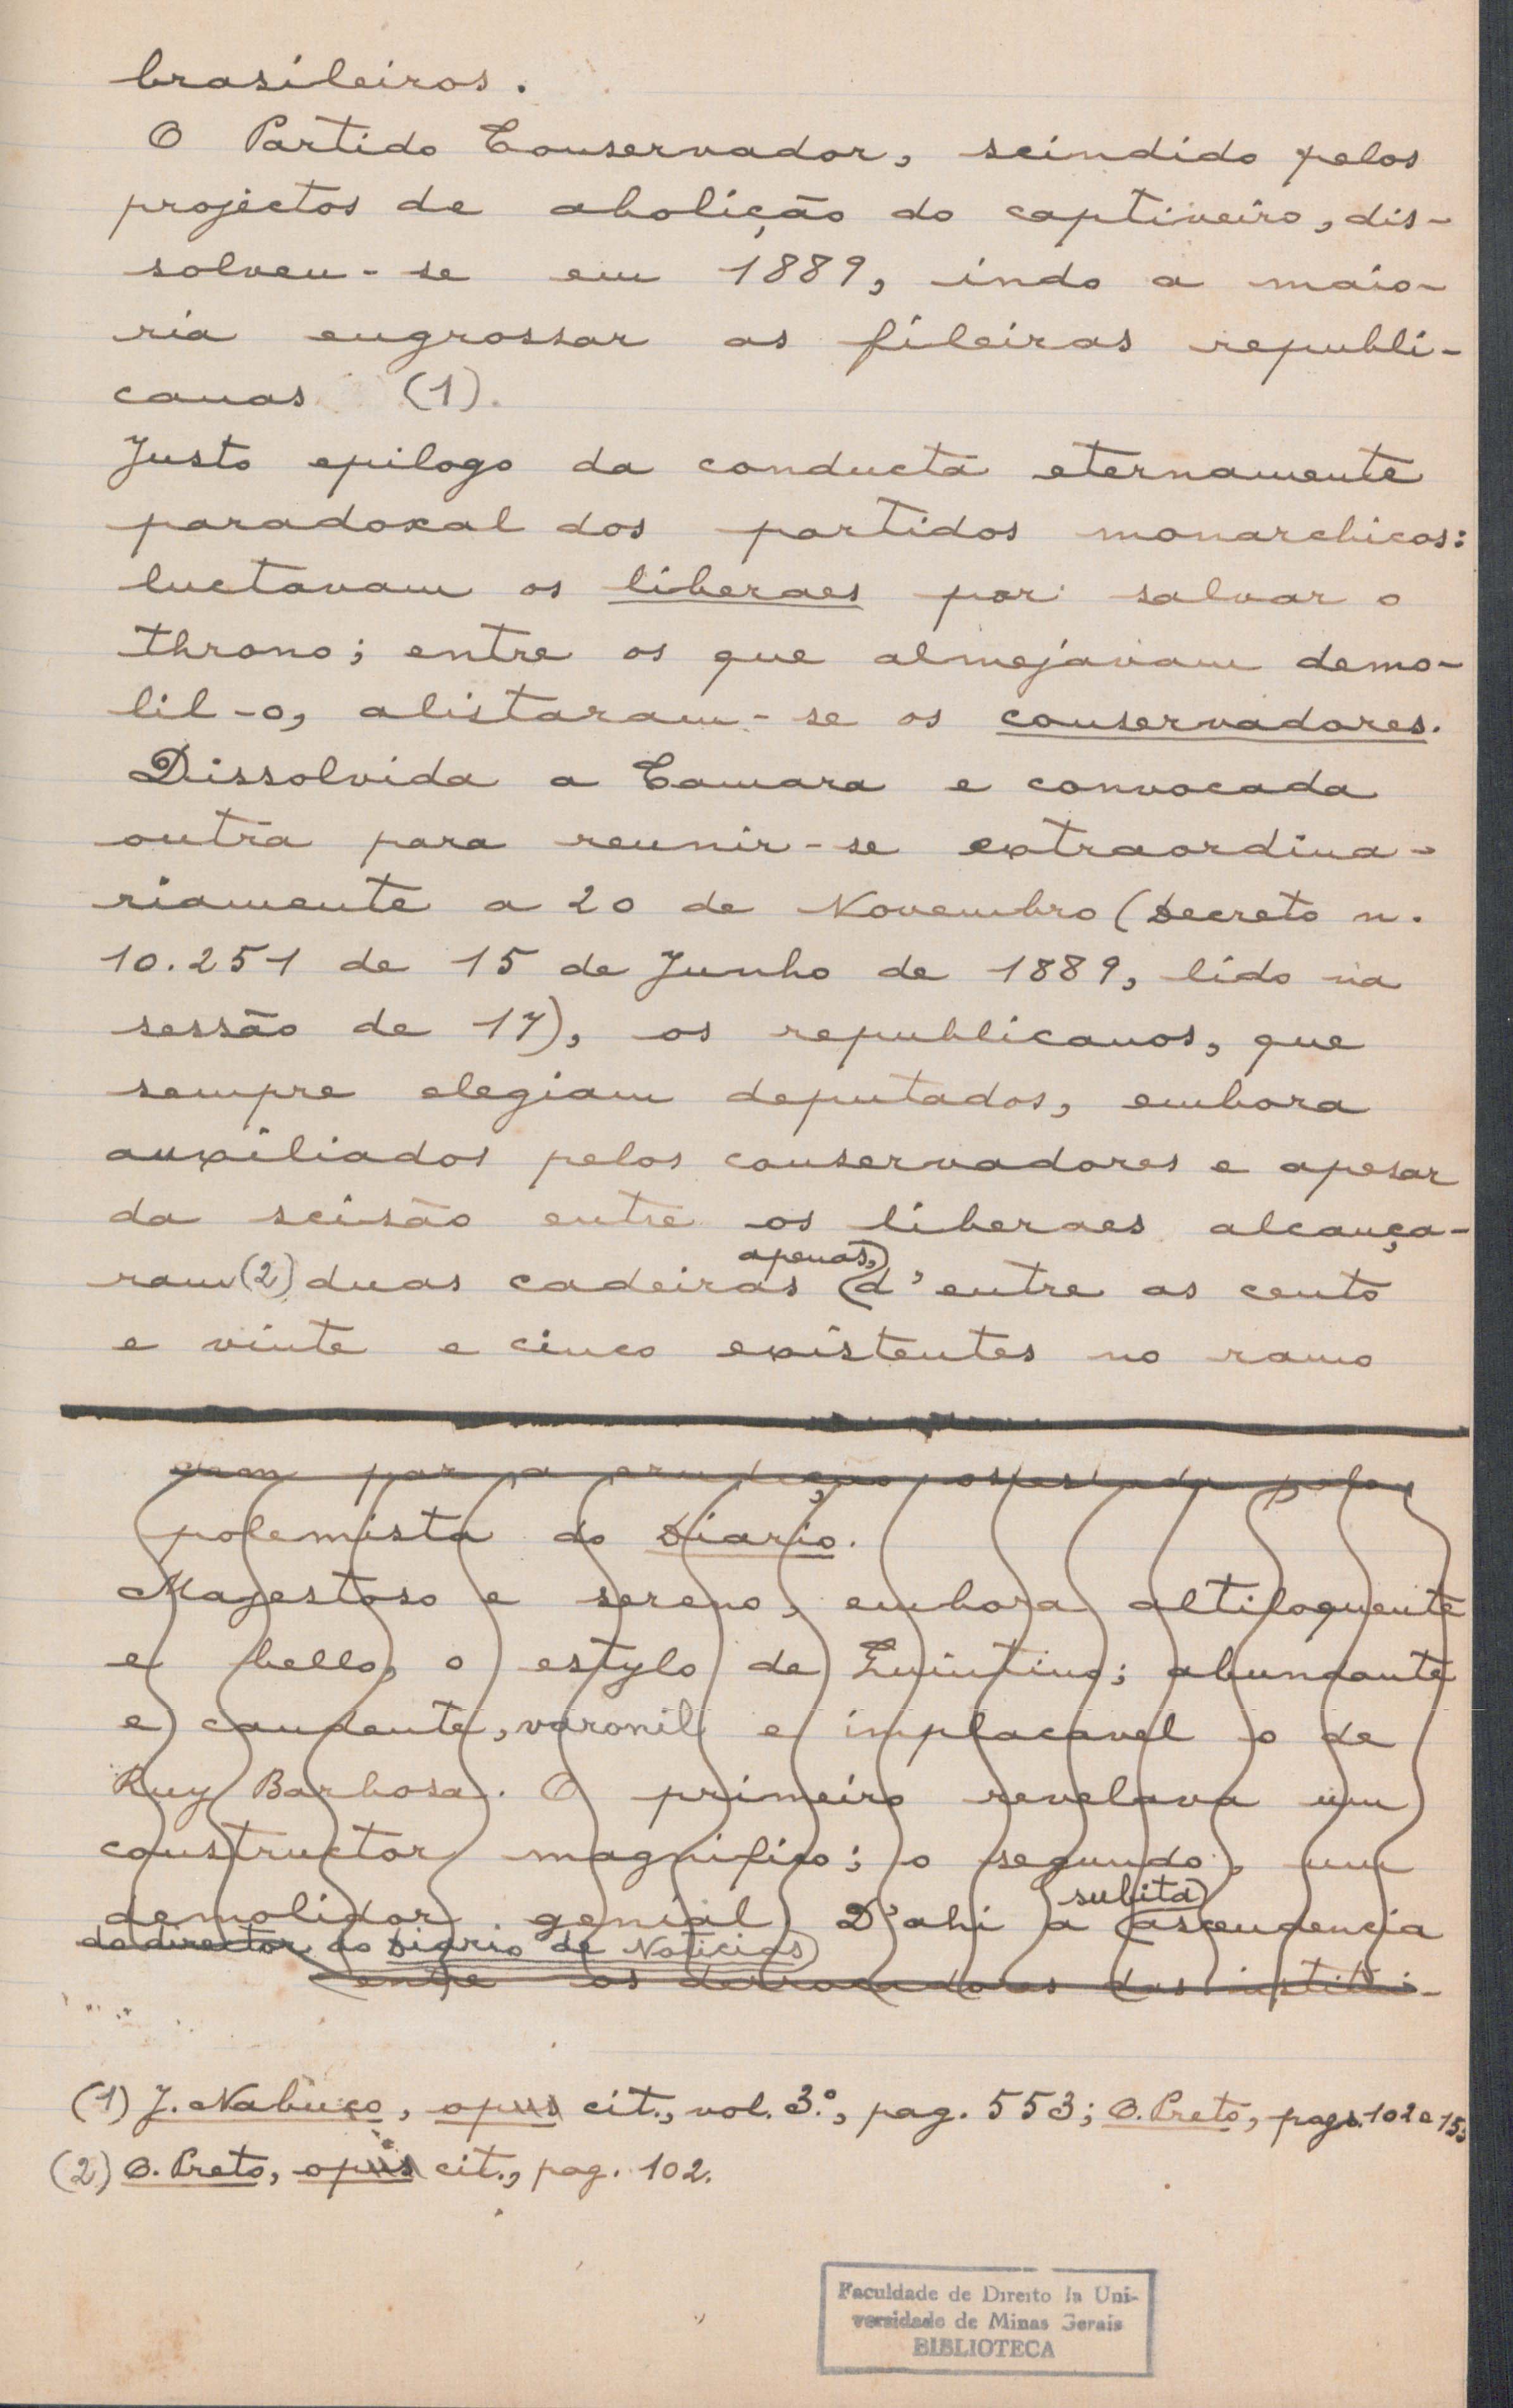 brasileiros.
O Partido Conservador, scindido pelos
projectos de abolição do captiveiro, dis-
solveu-se em 1889, indo a maio-
ria engrossar as fileiras republi-
canas (1).
Justo epilogo da conducta eternamente
paradoxal dos partidos monarchicos:
luctavam os liberaes por salvar o
throno; entre os que almejavam demo-
lil-o, alistaram-se os conservadores.
Dissolvida a Camara e convocada
outra para reunir-se extraordina-
riamente a 20 de Novembro (Decreto n.
10.251 de 15 de Junho de 1889, lido na
sessão de 17), os republicanos, que
sempre elegiam deputados, embora
auxiliados pelos conservadores e apesar
da scisão entre os liberaes alcança-
ram (2) duas cadeiras apenas, d'entre as cento
e vinte e cinco existentes no ramo
por a
polemista do Diario.
Magestoso e sereno, embora altiloquente
e bello, o estylo de Quintino; abundante
e candente, varonil e implacavel o de
Ruy Barbosa. O primeiro revelava um
constructor magnifico; o segundo, um
demolidor genial. D'ahi a subita ascendencia
do director do Diario de Noticias
entre os derrocadores das institui-
(1) J. Nabuco, opus cit., vol. 3.º, pag. 553; O. Preto, pags. 102 e
(2) O. Preto, opus cit., pag. 102.
Faculdade de Direito da Uni-
versidade de Minas Gerais
BIBLIOTECA